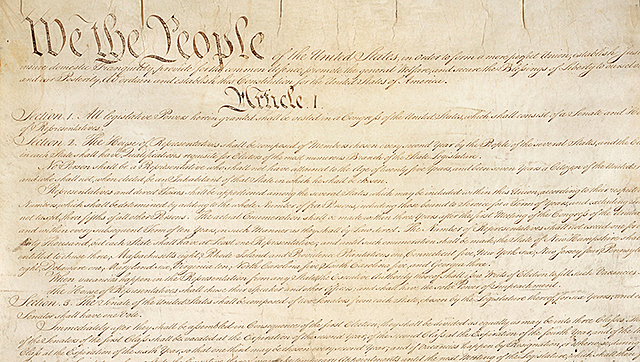 We the People of the United States, in Order to form a more perfect Union, establish Justice,
insure domestic Tranquility, provide for the common defence, promote the general Welfare, and secure the Blessings of Liberty to ourselves
and our Posterity, do ordain and establish this Constitution for the United States of America.
Article. I.
Section. 1. All legislative Powers herein granted shall be vested in a Congress of the United States, which shall consist of a Senate and House
of Representatives.
Section. 2. The House of Representatives shall be composed of Members chosen every second Year by the People of the several States, and the
in each State shall have Qualifications requisite for Electors of the most numerous Branch of the State Legislature.
No Person shall be a Representative who shall not have attained to the Age of twenty five Years, and been seven Years a Citizen of the United
and who shall not, when elected, be an Inhabitant of that State in which he shall be chosen.
Representatives and direct Taxes shall be apportioned among the several States which may be included within this Union, according to their respective
Numbers, which shall be determined by adding to the whole Number of free Persons, including those bound to Service for a Term of Years, and excluding
not taxed, three fifths of all other Persons. The actual Enumeration shall be made within three Years after the first Meeting of the Congress of the United
and within every subsequent Term of ten Years, in such Manner as they shall by Law direct. The Number of Representatives shall not exceed one for
thirty Thousand, but each State shall have at Least one Representative; and until such enumeration shall be made, the State of New Hampshire shall be
entitled to chuse three, Massachusetts eight, Rhode Island and Providence Plantations one, Connecticut five, New York six, New Jersey four, Pennsylvania
eight, Delaware one, Maryland six, Virginia ten, North Carolina five, South Carolina five, and Georgia three.
When vacancies happen in the Representation from any State, the Executive Authority thereof shall issue Writs of Election to fill such Vacancies.
The House of Representatives shall chuse their Speaker and other Officers; and shall have the sole Power of Impeachment.
Section. 3. The Senate of the United States shall be composed of two Senators from each State, chosen by the Legislature thereof, for six Years; and
Senator shall have one Vote.
Immediately after they shall be assembled in Consequence of the first Election, they shall be divided as equally as may be into three Classes.
of the Senators of the first Class shall be vacated at the Expiration of the second Year, of the second Class at the Expiration of the fourth Year, and of the
Class at the Expiration of the sixth Year, so that one third may be chosen every second Year; and if Vacancies happen by Resignation, or otherwise, during
Appointments until the next Meeting of the Legislature,